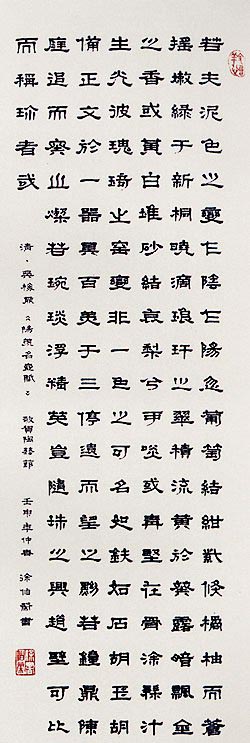 若夫泥色之變乍陰乍陽忽葡萄結紺紫倏橘柚而蒼
搖嫩綠于新桐曉滴琅玕之翠積流黃於葵露暗飄金
之香或黃白堆砂結哀梨兮可啖或青堅在骨塗髹汁
生光彼瑰琦之窯變非一色之可名如鉄如石胡玉胡
備正文於一器具百美于三停遠而望之黝若鐘鼎陳
庭追而察之燦若琬琰浮精英豈隨珠之與趙璧可比
而稱珍者哉
清·吳梅鼎《陽羨名壺賦》 陶藝館 壬申年仲春 徐伯 書